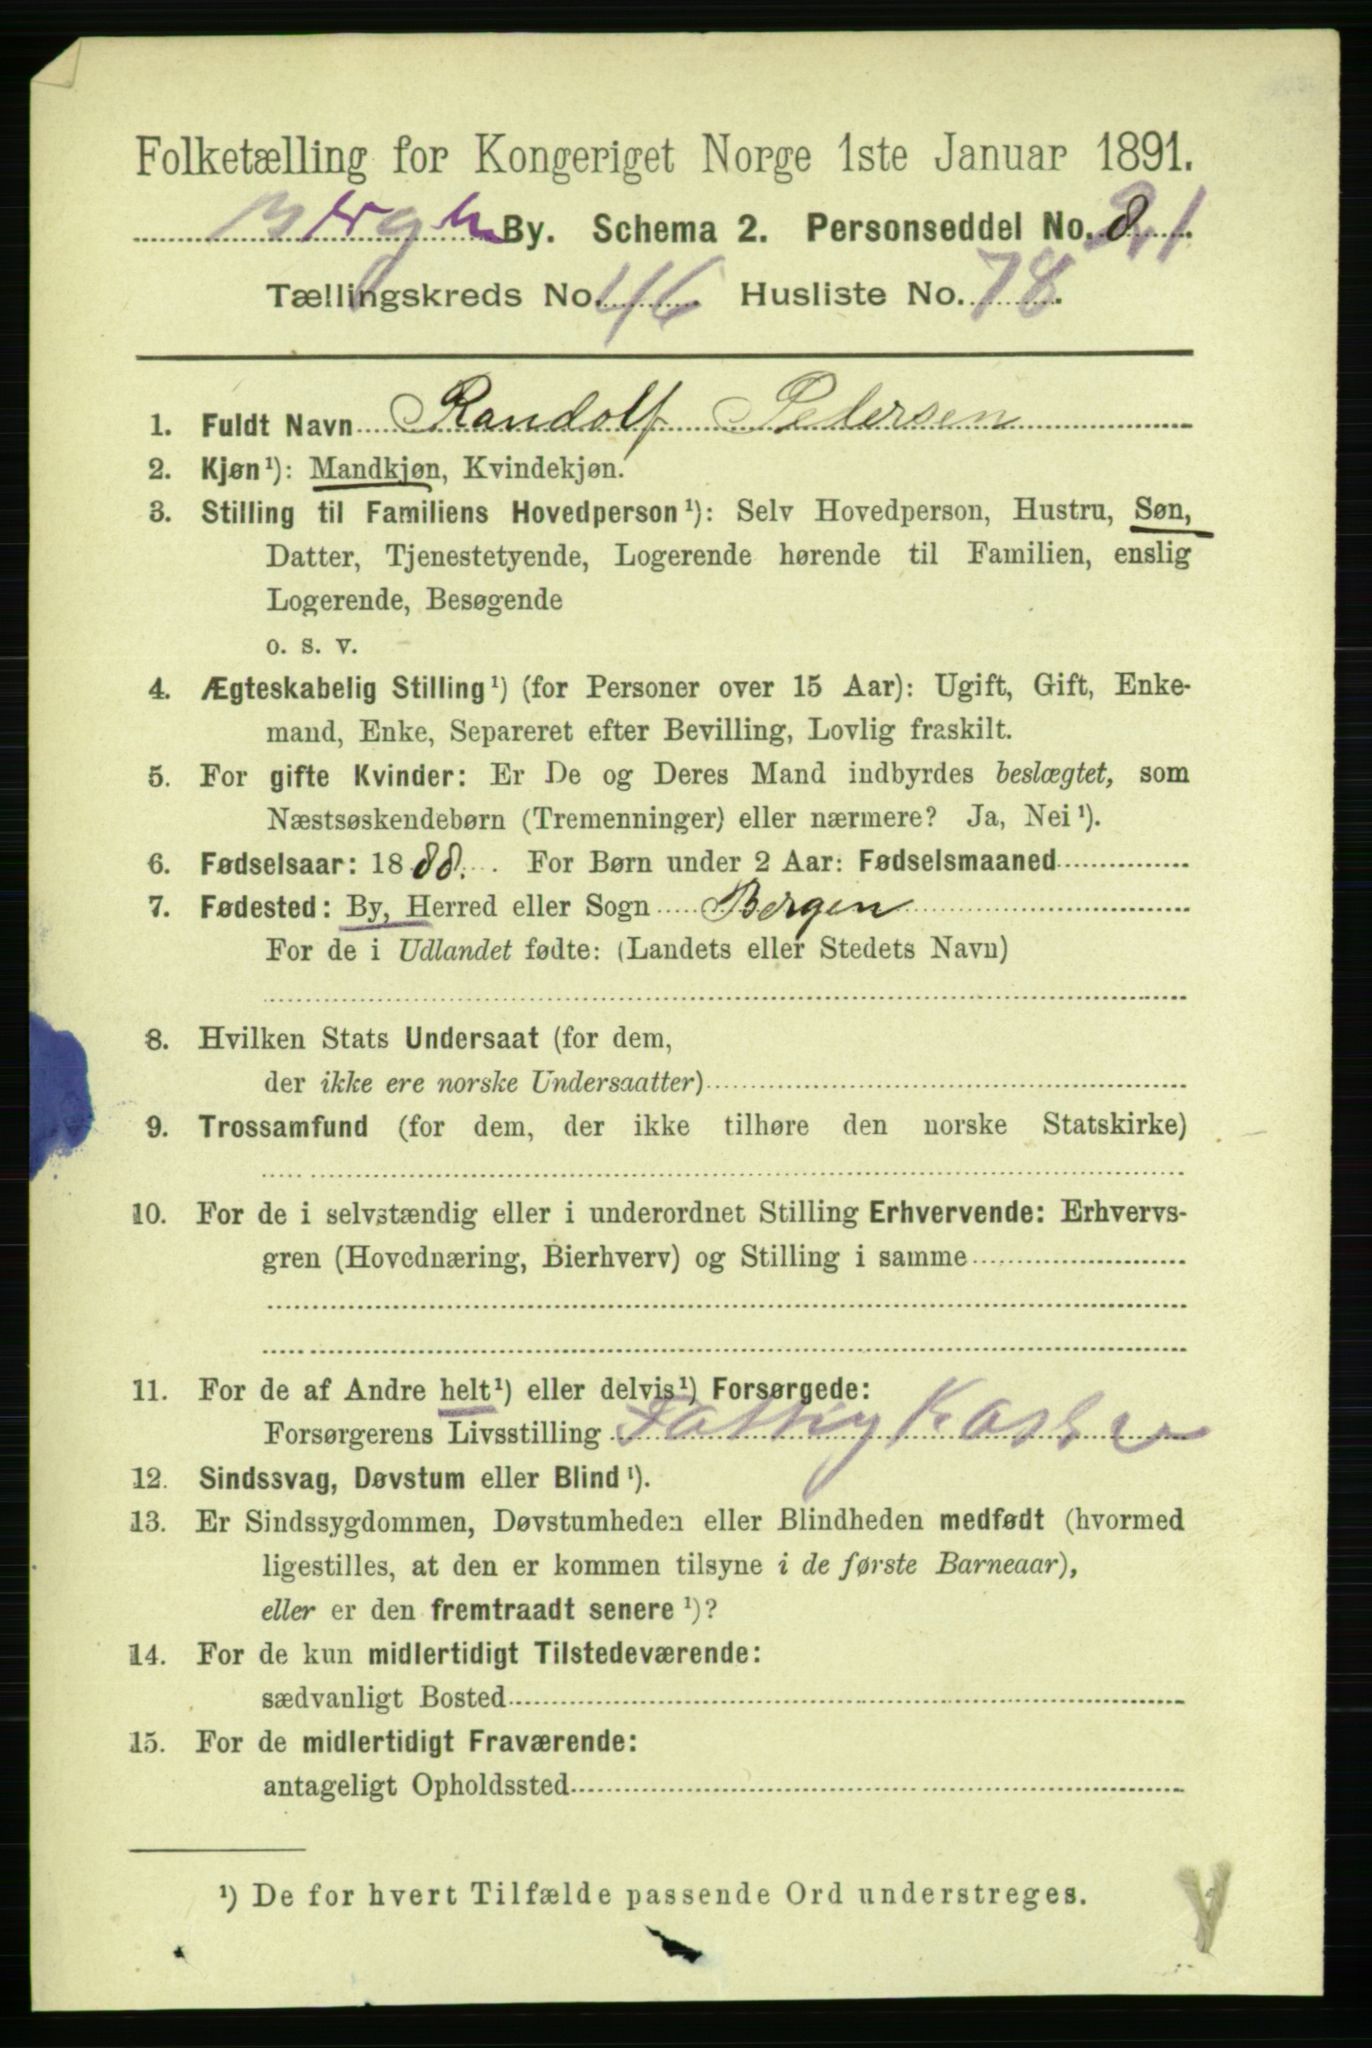 Folketælling for Kongeriget Norge 1ste Januar 1891.
Bergen By. Schema 2. Personseddel No. 8 21
Tællingskreds No. 46 Husliste No. 78.
1. Fuldt Navn Randolf Petersen
2. Kjøn¹): Mandkjøn, Kvindekjøn.
3. Stilling til Familiens Hovedperson¹): Selv Hovedperson, Hustru, Søn,
Datter, Tjenestetyende, Logerende hørende til Familien, enslig
Logerende, Besøgende
o. s. v.
4. Ægteskabelig Stilling¹) (for Personer over 15 Aar): Ugift, Gift, Enke-
mand, Enke, Separeret efter Bevilling, Lovlig fraskilt.
5. For gifte Kvinder: Er De og Deres Mand indbyrdes beslægtet, som
Næstsøskendebørn (Tremenninger) eller nærmere? Ja, Nei¹).
6. Fødselsaar: 1888. For Børn under 2 Aar: Fødselsmaaned
7. Fødested: By, Herred eller Sogn Bergen
For de i Udlandet fødte: (Landets eller Stedets Navn)
8. Hvilken Stats Undersaat (for dem,
der ikke ere norske Undersaatter)
9. Trossamfund (for dem, der ikke tilhøre den norske Statskirke)
10. For de i selvstændig eller i underordnet Stilling Erhvervende: Erhvervs-
gren (Hovednæring, Bierhverv) og Stilling i samme
11. For de af Andre helt¹) eller delvis¹) Forsørgede:
Forsørgerens Livsstilling Fattigkasse
12. Sindssvag, Døvstum eller Blind¹).
13. Er Sindssygdommen, Døvstumheden eller Blindheden medfødt (hvormed
ligestilles, at den er kommen tilsyne i de første Barneaar),
eller er den fremtraadt senere¹)?
14. For de kun midlertidigt Tilstedeværende:
sædvanligt Bosted
15. For de midlertidigt Fraværende:
antageligt Opholdssted
¹) De for hvert Tilfælde passende Ord understreges.